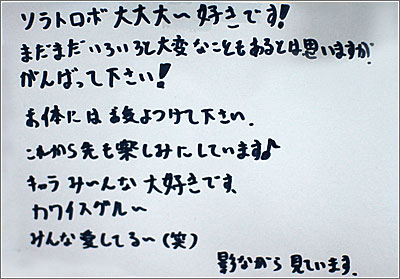 ソラトロボ 大大大〜好きです!
まだまだいろいろと大変なこともあるとは思いますが
がんばって下さい!
お体にはお気をつけて下さい.
これから先も楽しみにしています♪
キャラ み〜んな 大好きです.
カワイスグル〜
みんな愛してる〜(笑)
影ながら 見ています.